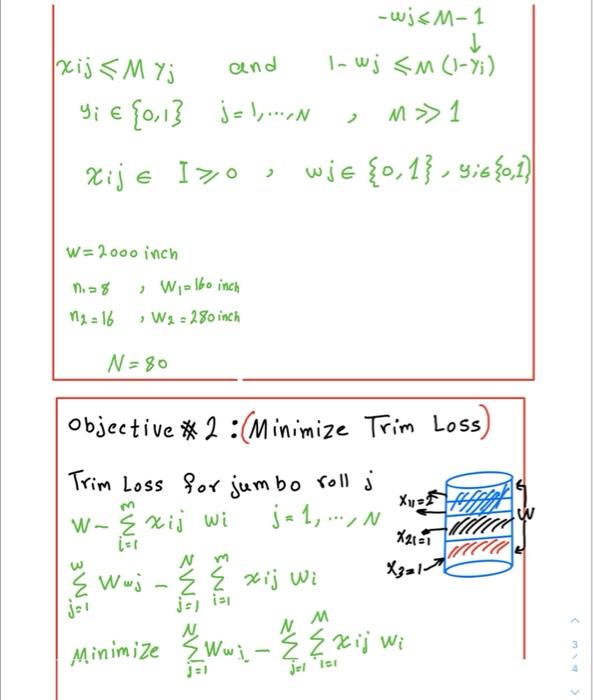 -wj ≤ M - 1
↓
xij ≤ M yj and 1 - wj ≤ M (1-yi)
yi ∈ {0,1} j = 1, ..., N , M >> 1
xij ∈ I ≥ 0 , wj ∈ {0,1} , yi ∈ {0,1}
W = 2000 inch
n1 = 8 , W1 = 160 inch
n2 = 16 , W2 = 280 inch
N = 80
objective # 2 : (Minimize Trim Loss)
Trim Loss for jumbo roll j
W - Σ_{i=1}^{m} xij wi j = 1, ..., N
x11=2
W
x21=1
x3=1
Σ_{j=1}^{w} Wwj - Σ_{j=1}^{N} Σ_{i=1}^{m} xij wi
Minimize Σ_{j=1}^{N} Wwj - Σ_{j=1}^{N} Σ_{i=1}^{M} xij wi
3
/
4